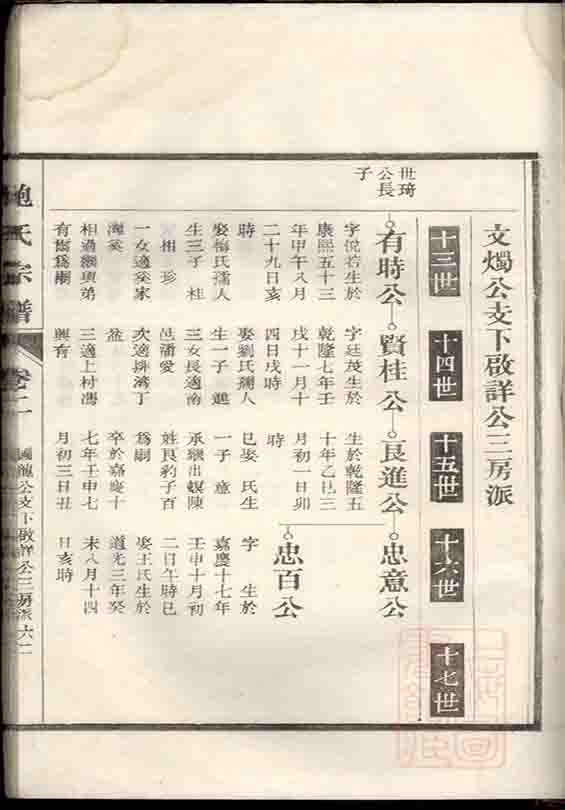 文燭公支下啟詳公三房派
十三世
十四世
十五世
十六世
十七世
世琦
公長
子
有時公
賢桂公
良進公
忠意公
忠百公
字悅若生於
康熙五十三
年甲午八月
二十九日亥
時
娶梅氏孺人
生三子 桂
相 珍
一女適奚家
灣奚
相過繼與弟
有爾為嗣
字廷茂生於
乾隆七年壬
戌十一月十
四日戌時
娶劉氏孺人
生一子
三女長適南
邑潘愛
次適
灣丁
盆
三適上村馮
興有
生於乾隆五
十年乙巳三
月初一日卯
時
已娶 氏生
一子 意
承繼出螟陳
姓良豹子百
為嗣
卒於嘉慶十
七年壬申七
月初三日丑
字 生於
嘉慶十七年
壬申十月初
二日午時已
娶王氏生於
道光三年癸
未八月十四
日亥時
鮑氏宗譜
卷二
國龍公支下啟詳公三房派 六二